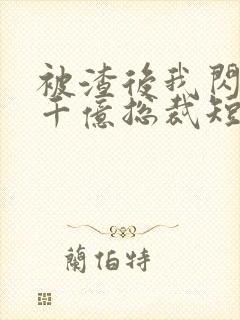 被渣後我閃
千億總裁短
蘭伯特